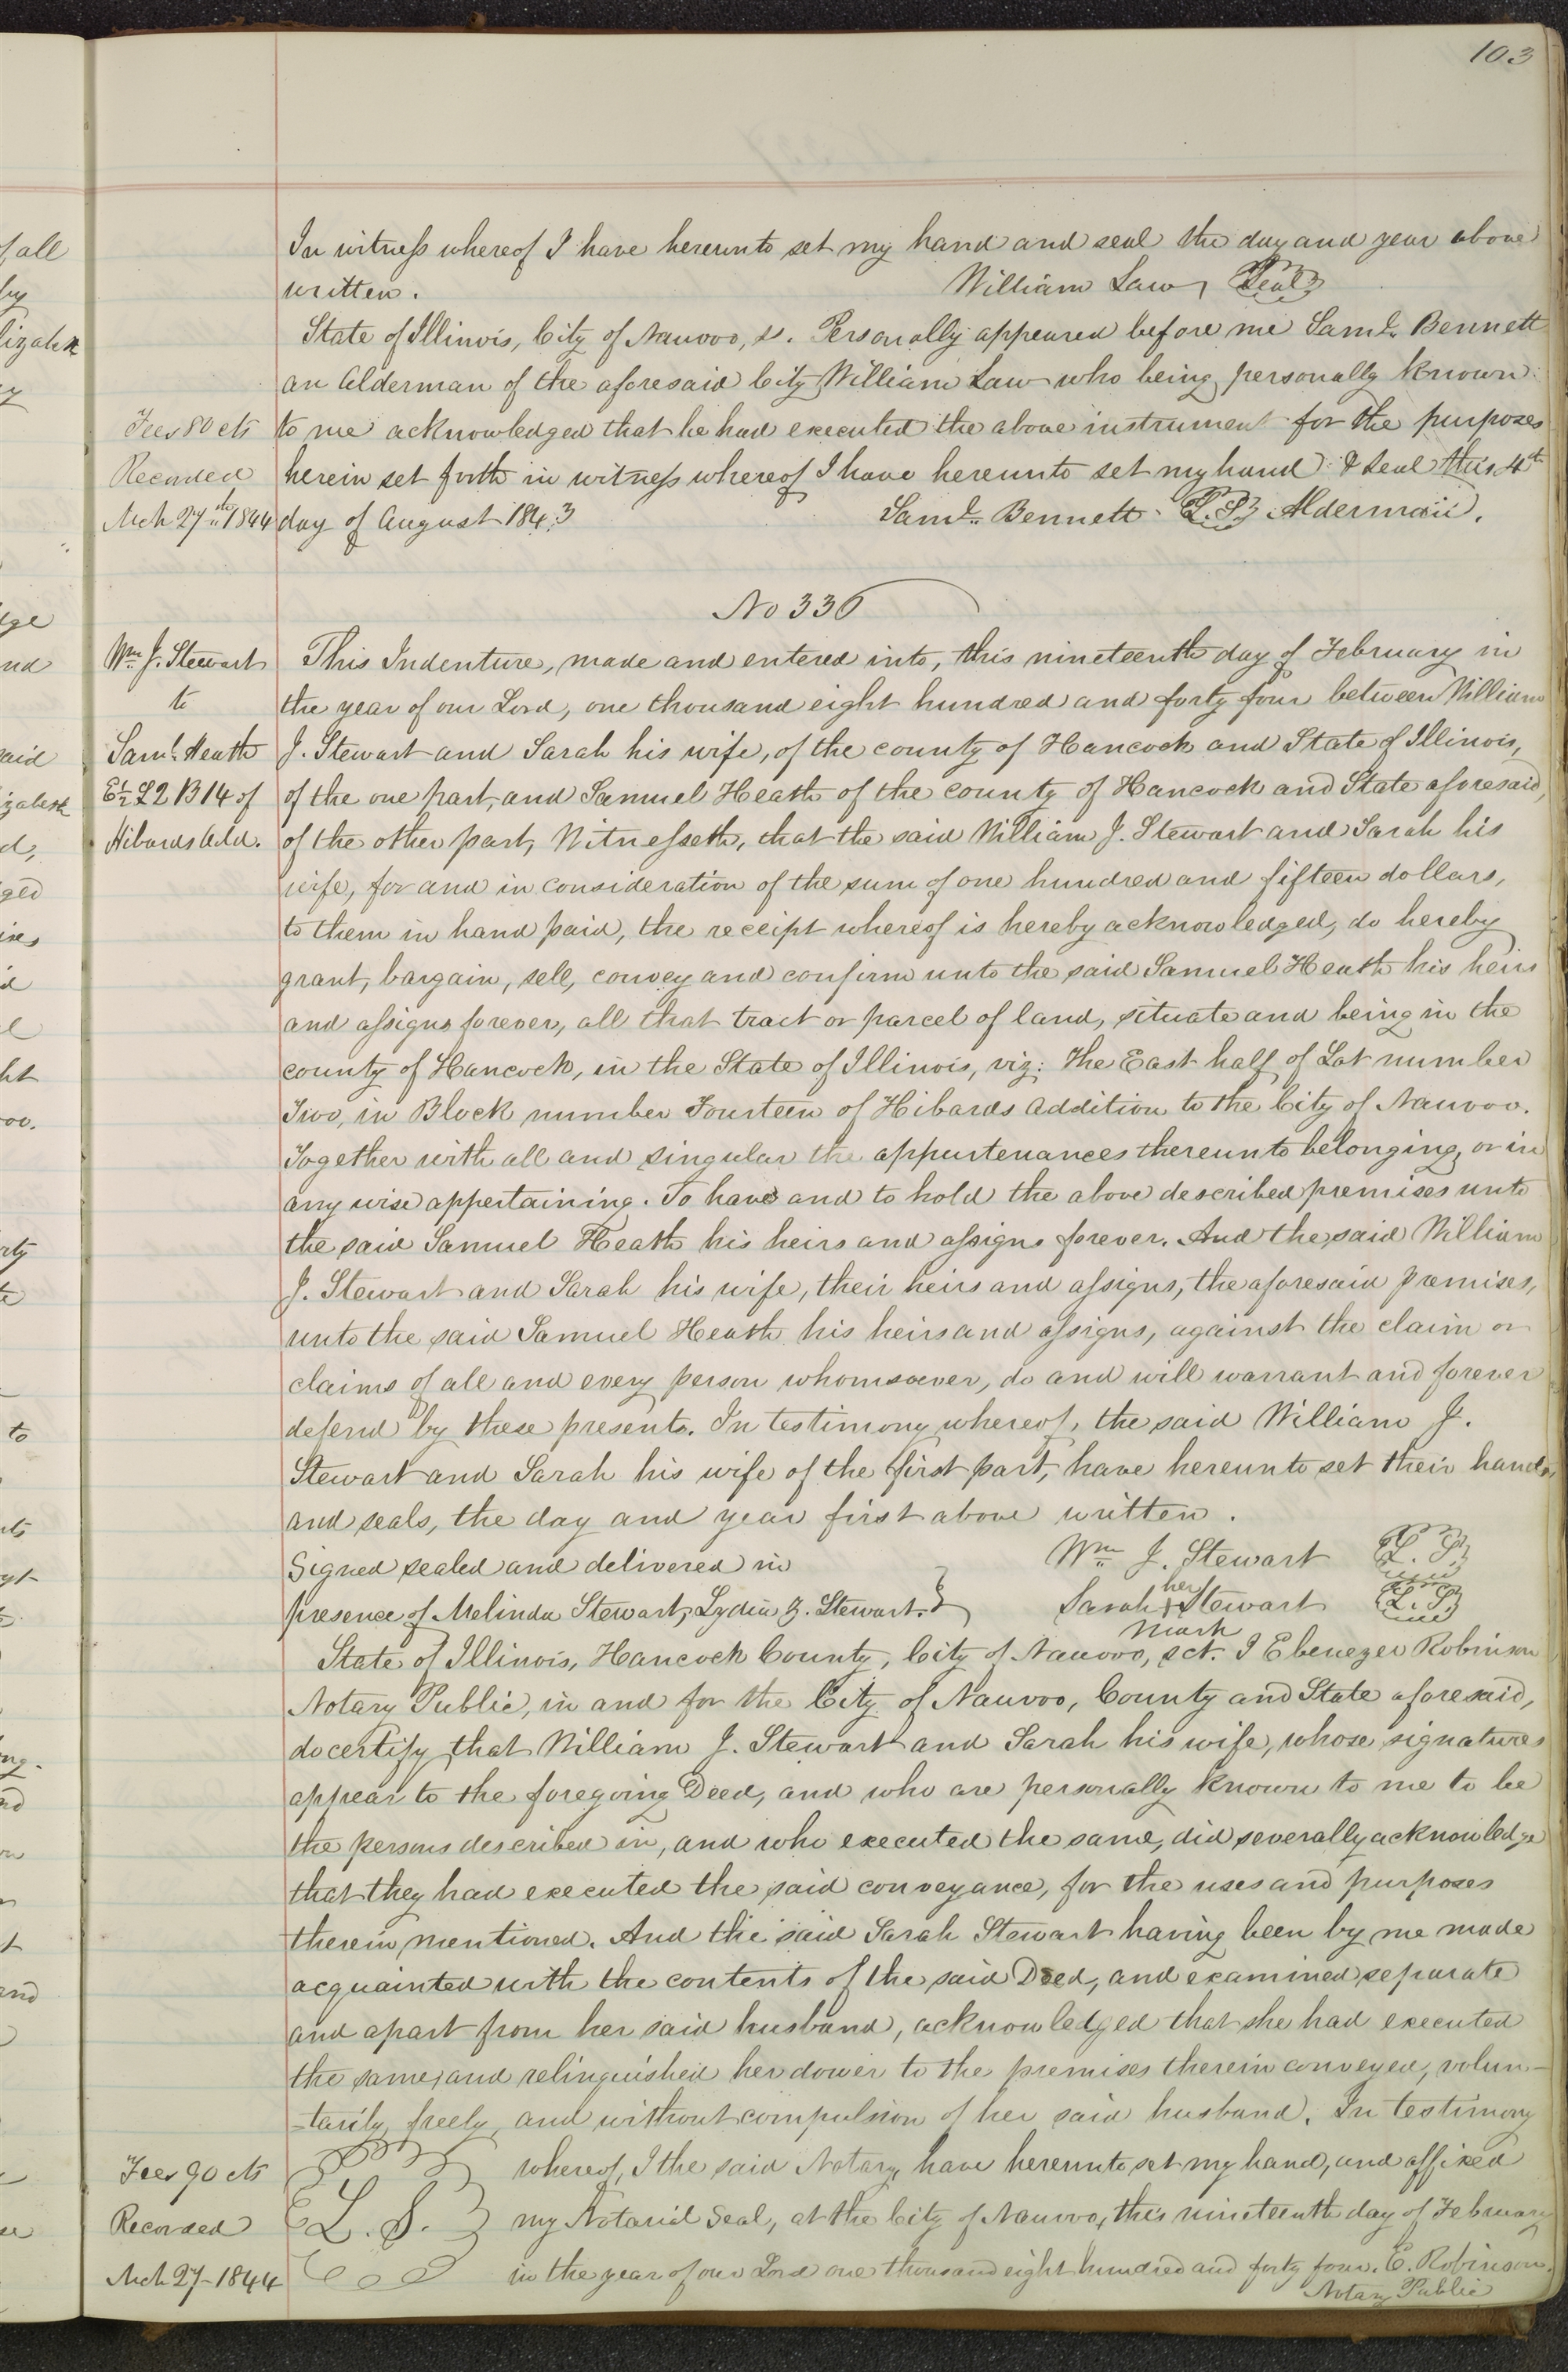 103
In witneſs whereof I have hereunto set my hand and seal the day and year above
written. William Law Seal
State of Illinois, City of Nauvoo, ss. Personally appeared before me Saml. Bennett
an Alderman of the aforesaid City William Law who being personally known
Fees 80 cts
to me acknowledged that he had executed the above instrument for the purposes
Recorded
herein set forth in witneſs whereof I have hereunto set my hand & seal this 4th
Mch 27th 1844
day of August 1843 Saml. Bennett L.S. Alderman.
No 336
Wm. J. Stewart
to
Saml. Heath
E½ L2 B14 of
Hibards Add.
This Indenture, made and entered into, this nineteenth day of February in
the year of our Lord, one thousand eight hundred and forty four between William
J. Stewart and Sarah his wife, of the county of Hancock and State of Illinois,
of the one part, and Samuel Heath of the county of Hancock and State aforesaid,
of the other part, Witneſseth, that the said William J. Stewart and Sarah his
wife, for and in consideration of the sum of one hundred and fifteen dollars,
to them in hand paid, the receipt whereof is hereby acknowledged, do hereby
grant, bargain, sell, convey and confirm unto the said Samuel Heath his heirs
and aſsigns forever, all that tract or parcel of land, situate and being in the
county of Hancock, in the State of Illinois, viz: The East half of Lot number
Two, in Block number Fourteen of Hibards Addition to the City of Nauvoo.
Together with all and singular the appurtenances thereunto belonging, or in
any wise appertaining. To have and to hold the above described premises unto
the said Samuel Heath his heirs and aſsigns forever. And the said William
J. Stewart and Sarah his wife, their heirs and aſsigns, the aforesaid premises,
unto the said Samuel Heath his heirs and aſsigns, against the claim or
claims of all and every person whomsoever, do and will warrant and forever
defend by these presents. In testimony whereof, the said William J.
Stewart and Sarah his wife of the first part, have hereunto set their hands
and seals, the day and year first above written.
Signed sealed and delivered in Wm. J. Stewart L.S.
presence of Melinda Stewart, Lydia Z. Stewart. } Sarah her x mark Stewart L.S.
State of Illinois, Hancock County, City of Nauvoo, sct. I Ebenezer Robinson
Notary Public, in and for the City of Nauvoo, County and State aforesaid,
do certify that William J. Stewart and Sarah his wife, whose signatures
appear to the foregoing Deed, and who are personally known to me to be
the persons described in, and who executed the same, did severally acknowledge
that they had executed the said conveyance, for the uses and purposes
therein mentioned. And the said Sarah Stewart having been by me made
acquainted with the contents of the said Deed, and examined separate
and apart from her said husband, acknowledged that she had executed
the same, and relinquished her dower to the premises therein conveyed, volun-
-tarily, freely, and without compulsion of her said husband. In testimony
Fees 90 cts
whereof, I the said Notary, have hereunto set my hand, and affixed
Recorded
L. S. my Notarial Seal, at the City of Nauvoo, this nineteenth day of February
Mch 27-1844
in the year of our Lord one thousand eight hundred and forty four. E. Robinson.
Notary Public